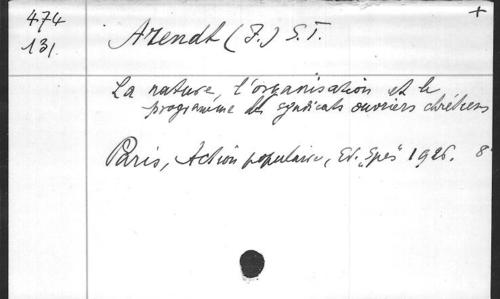 +
474
131
Arendt (J.) S.T.
La nature, l'organisation et le
programme des syndicats ouvriers chrétiens
Paris, Action populaire, Ed. „Spes" 1926. 8°